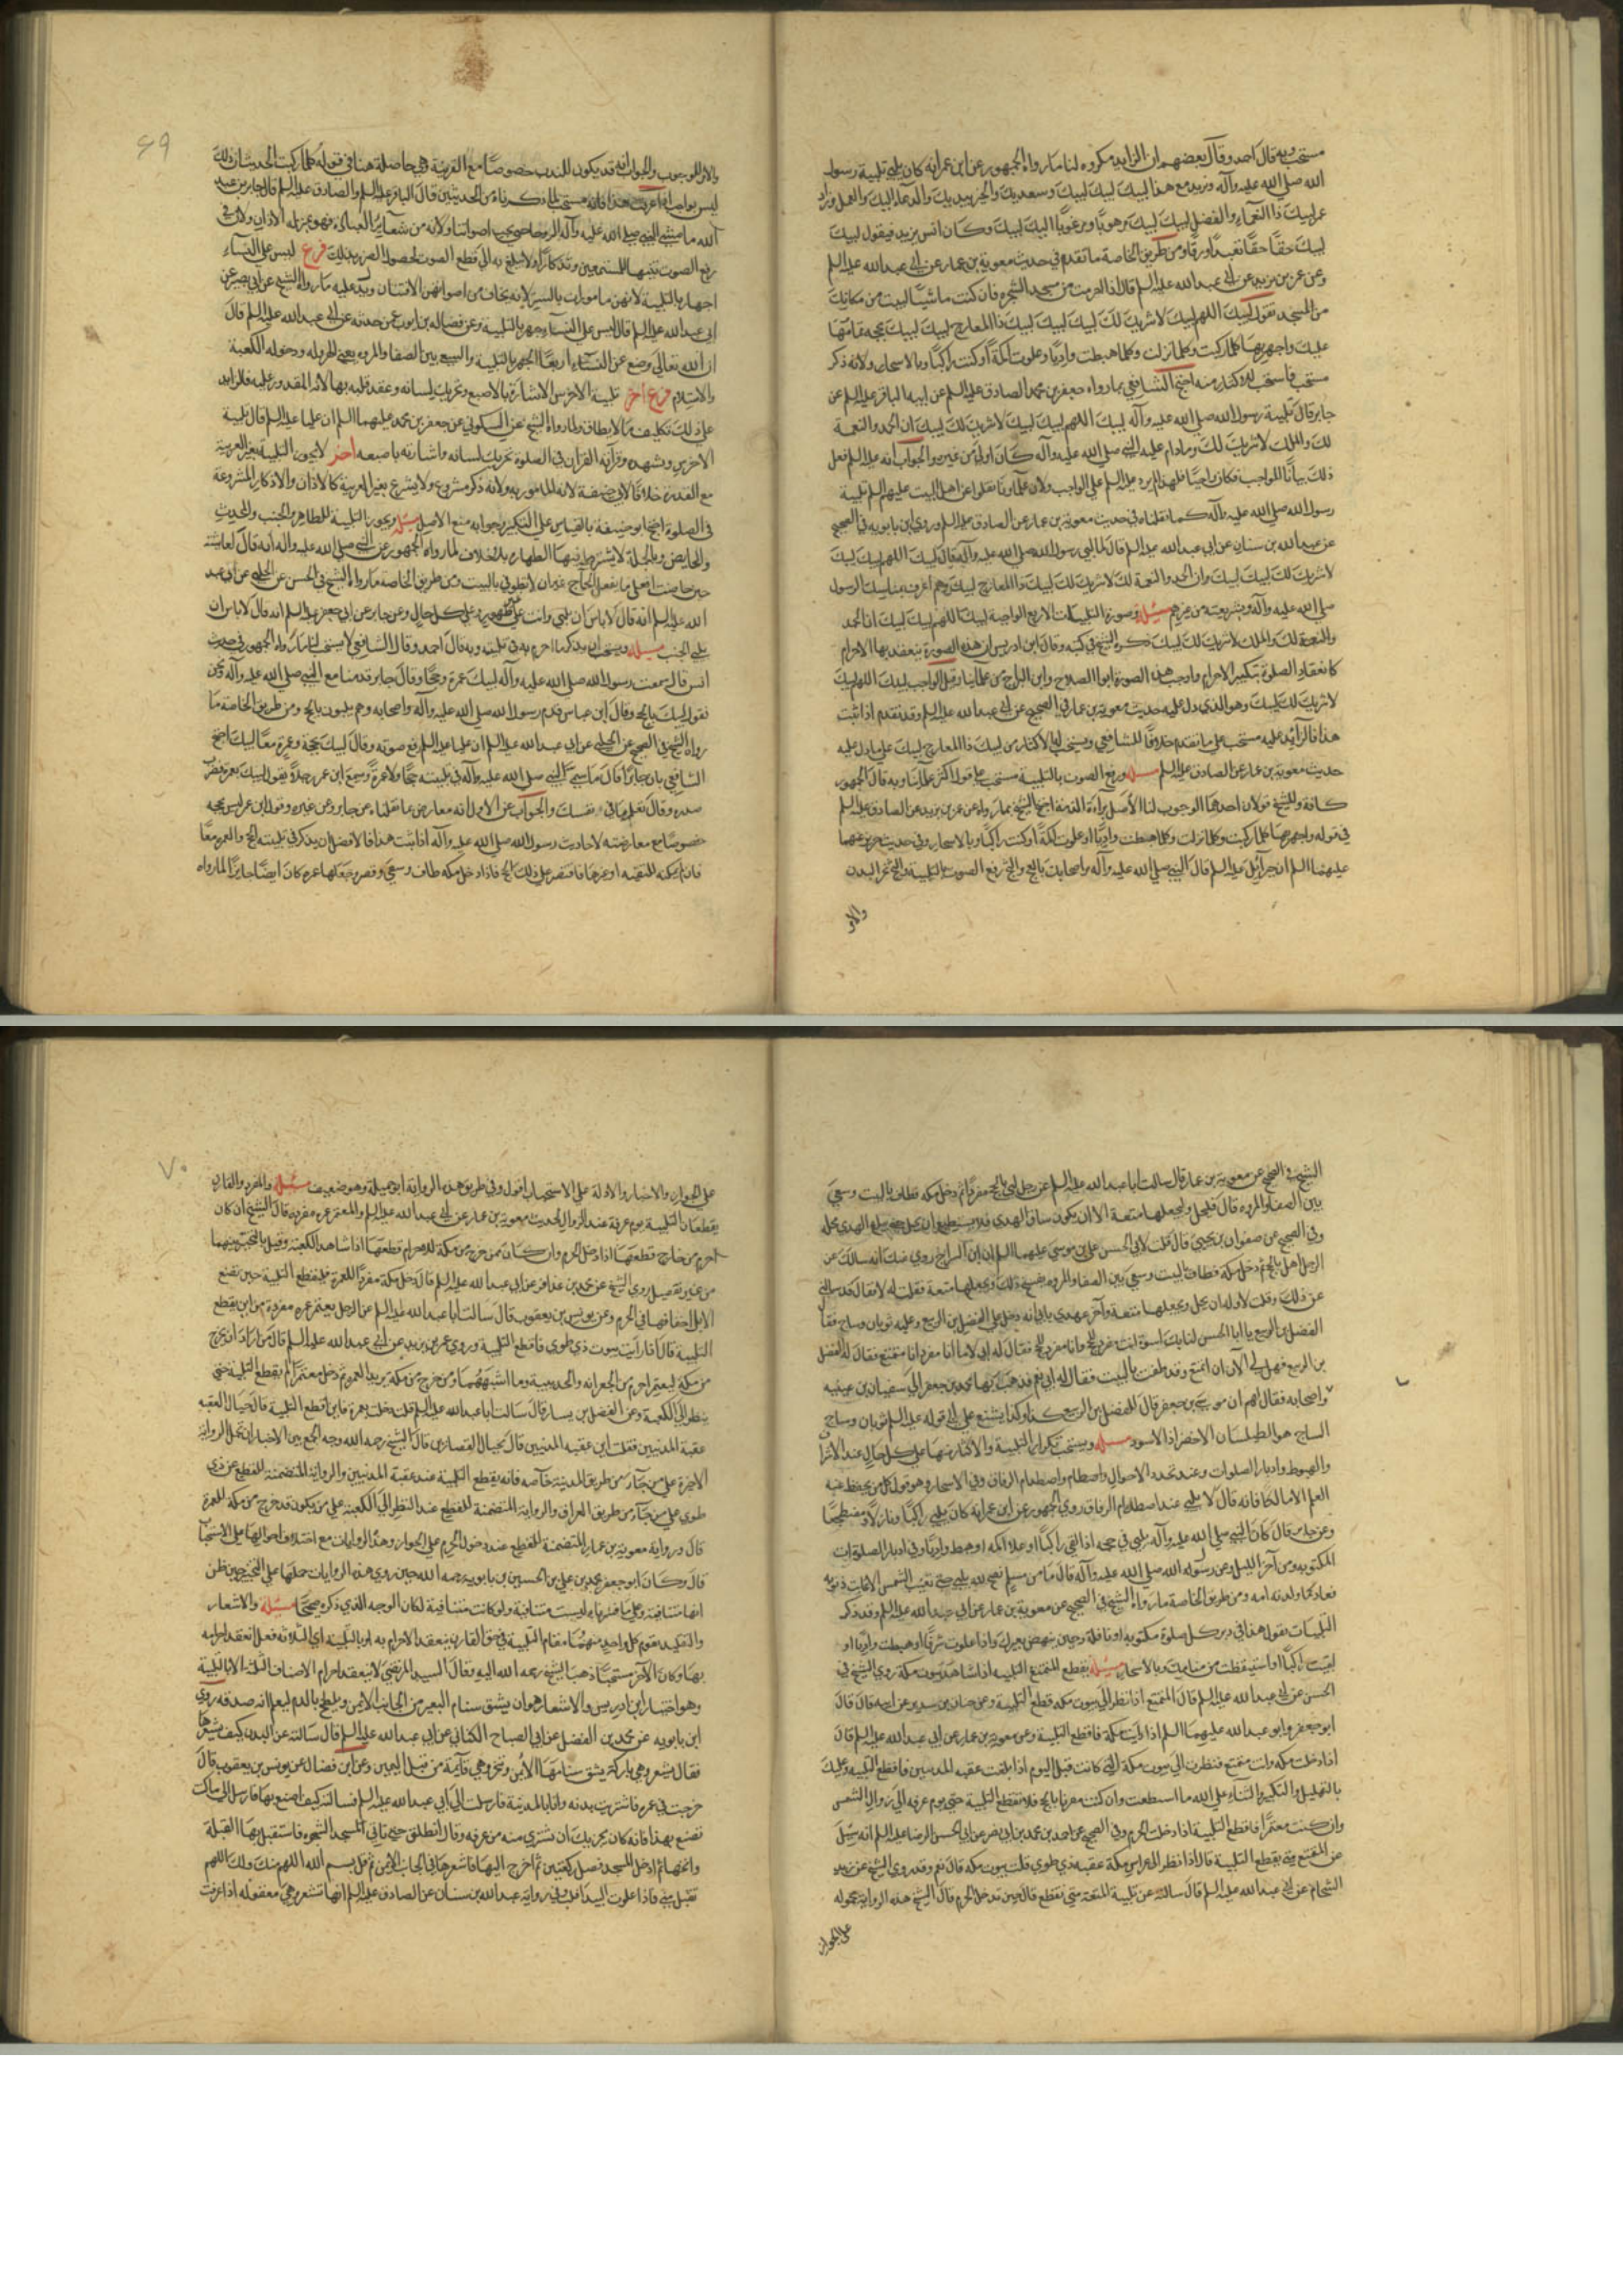 مستحب وبه قال احمد وقال بعضهم ان الزايد مكروه لنا ما رواه الجمهور عن ابن عمر انه كان يلبي تلبية رسول
الله صلي الله عليه وآله ويزيد مع هذا لبيك لبيك لبيك وسعديك والخير بيديك والدعاء اليك والعمل وزاد
عمر لبيك ذا النعماء والفضل لبيك لبيك مرهوبا ومرغوبا اليك لبيك وكان انس يزيد فيقول لبيك
لبيك حقا حقا تعبدا ورقا ومن طريق الخاصة ما تقدم في حديث معوية بن عمار عن ابي عبد الله عليه السلم
وعن عمر بن يزيد عن ابي عبد الله عليه السلم قال اذا احرمت من مسجد الشجرة فان كنت ماشيا لبيت من مكانك
من المسجد تقول لبيك اللهم لبيك لا شريك لك لبيك لبيك لبيك ذا المعارج لبيك لبيك بحجة تمامها
عليك واجهر بها كلما ركبت وكلما نزلت وكلما هبطت واديا وعلوت اكمة او كنت راكبا وبالاسحار ولانه ذكر
مستحب فاستحب الاكثار منه احتج الشافعي بما رواه جعفر بن محمد الصادق عليه السلم عن ابيه الباقر عليه السلم عن
جابر قال تلبية رسول الله صلي الله عليه وآله لبيك اللهم لبيك لبيك لا شريك لك لبيك ان الحمد والنعمة
لك والملك لا شريك لك وما دام عليه النبي صلي الله عليه وآله كان اولي من غيره والجواب انه عليه السلم فعل
ذلك بيانا للواجب فكان واجبا فلهذا لم يزد عليه السلم علي الواجب ولان علماونا نقلوا عن اهل البيت عليهم السلم تلبية
رسول الله صلي الله عليه وآله كما نقلناه في حديث معوية بن عمار عن الصادق عليه السلم وروي ابن بابويه في الصحيح
عن عبد الله بن سنان عن ابي عبد الله عليه السلم قال لما لبي رسول الله صلي الله عليه وآله قال لبيك اللهم لبيك لبيك
لا شريك لك لبيك لبيك ان الحمد والنعمة لك لا شريك لك لبيك ذا المعارج لبيك وهم اعرف بمناسك الرسول
صلي الله عليه وآله وبشريعته من غيرهم مسئلة وصورة التلبيات الاربع الواجبة لبيك اللهم لبيك لبيك ان الحمد
والنعمة لك والملك لا شريك لك لبيك ذكره الشيخ في كتبه وقال ابن ادريس ان هذه الصورة ينعقد بها الاحرام
كانعقاد الصلوة بتكبيرة الاحرام واوجب هذه الصورة ابو الصلاح وابن البراج من علمائنا وقيل الواجب لبيك اللهم لبيك
لا شريك لك لبيك وهو الذي دل عليه حديث معوية بن عمار في الصحيح عن ابي عبد الله عليه السلم وقد تقدم اذا ثبت
هذا فالزايد عليه مستحب علي ما تقدم خلافا للشافعي ويستحب الاكثار من لبيك ذا المعارج لبيك علي ما دل عليه
حديث معوية بن عمار عن الصادق عليه السلم مسئلة ورفع الصوت بالتلبية مستحب علي قول اكثر علمائنا وبه قال الجمهور
كافة وللشيخ قولان احدهما الوجوب لنا الاصل براءة الذمة احتج الشيخ بما رواه عن عمر بن يزيد عن الصادق عليه السلم
في قوله واجهر بها كلما ركبت وكلما نزلت وكلما هبطت واديا او علوت اكمة او كنت راكبا وبالاسحار وفي حديث حريز عنهما
عليهما السلم ان جبرائيل عليه السلم قال للنبي صلي الله عليه وآله مر اصحابك بالعج والثج والعج رفع الصوت بالتلبية والثج نحر البدن
والامر
والامر للوجوب والجواب انه قد يكون للندب خصوصا مع القرينة وهي حاصلة هنا في قوله كلما ركبت الحديث فان ذلك
ليس بواجب اذا عرفت هذا فانه مستحب لما ذكرناه من الحديثين قال الباقر عليه السلم والصادق عليه السلم قال جابر بن عبد
الله ما مشي النبي صلي الله عليه وآله الروحا حتي بحت اصواتنا ولانه من شعاير العبادة فهو بمنزلة الاذان ولان في
رفع الصوت تنبيها للمستمعين وتذكارا ولا يبلغ به الي قطع الصوت لحصول الضرر بذلك فرع ليس علي النساء
اجهار بالتلبية لانهن مامورات بالستر لانه يخاف من اصواتهن الافتتان ويدل عليه ما رواه الشيخ عن ابي بصير عن
ابي عبد الله عليه السلم قال ليس علي النساء جهر بالتلبية وعن فضالة بن ايوب عمن حدثه عن ابي عبد الله عليه السلم قال
ان الله تعالي وضع عن النساء اربعا الجهر بالتلبية والسعي بين الصفا والمروة يعني الهرولة ودخول الكعبة
والاستلام فرع اخر تلبية الاخرس الاشارة بالاصبع وتحريك لسانه وعقد قلبه بها لانه المقدور عليه فالزايد
علي ذلك تكليف بما لا يطاق ولما رواه الشيخ عن السكوني عن جعفر بن محمد عليهما السلم ان عليا عليه السلم قال تلبية
الاخرس وتشهده وقرآنه القرآن في الصلوة تحريك لسانه واشارته باصبعه اخر لا يجوز التلبية بغير العربية
مع القدرة خلافا لابي حنيفة لانه المامور به ولانه ذكر مشروع ولا يشرع بغير العربية كالاذان والاذكار المشروعة
في الصلوة احتج ابو حنيفة بالقياس علي التكبير وجوابه منع الاصل مسئلة ويجوز التلبية للطاهر والجنب والمحدث
والحايض وبالجملة لا يشترط فيها الطهارة بلا خلاف لما رواه الجمهور عن النبي صلي الله عليه وآله انه قال لعايشة
حين حاضت افعلي ما يفعل الحاج غير ان لا تطوفي بالبيت ومن طريق الخاصة ما رواه الشيخ في الحسن عن الحلبي عن ابي عبد
الله عليه السلم انه قال لا باس ان يلبي وانت علي غير طهور وعلي كل حال وعن جابر عن ابي جعفر عليه السلم انه قال لا باس ان
يلبي الجنب مسئلة ويستحب ان يذكر ما احرم به في تلبيته وبه قال احمد وقال الشافعي لا يستحب لنا ما رواه الجمهور في حديث
انس قال سمعت رسول الله صلي الله عليه وآله لبيك عمرة وحجا وقال جابر قدمنا مع النبي صلي الله عليه وآله ونحن
نقول لبيك بالحج وقال ابن عباس قدم رسول الله صلي الله عليه وآله واصحابه وهم يلبون بالحج ومن طريق الخاصة ما
رواه الشيخ في الصحيح عن الحلبي عن ابي عبد الله عليه السلم ان عليا عليه السلم رفع صوته وقال لبيك بحجة وعمرة معا لبيك احتج
الشافعي بان جابرا قال ما سمي النبي صلي الله عليه وآله في تلبيته حجا ولا عمرة وسمع ابن عمر رجلا يقول لبيك بعمرة فضرب
صدره وقال تعلمه ما في نفسك والجواب عن الاول انه معارض بما نقلناه عن جابر وعن غيره وقول ابن عمر ليس بحجة
خصوصا مع معارضته لاحاديث رسول الله صلي الله عليه وآله اذا ثبت هذا فالافضل ان يذكر في تلبيته الحج والعمرة معا
فان لم يمكنه للتقية او غيرها فاقتصر علي ذلك الحج فاذا دخل مكة طاف وسعي وقصر وجعلها عمرة كان ايضا جايزا لما رواه
٦٩
الشيخ في الصحيح عن معوية بن عمار قال سالت ابا عبد الله عليه السلم عن رجل لبي بالحج مفردا ثم دخل مكة فطاف بالبيت وسعي
بين الصفا والمروة قال فليحل وليجعلها متعة الا ان يكون ساق الهدي فلا يستطيع ان يحل حتي يبلغ الهدي محله
وفي الصحيح عن صفوان بن يحيي قال قلت لابي الحسن علي بن موسي عليهما السلم ان ابن السراج روي عنك انه سالك عن
الرجل اهل بالحج ثم دخل مكة فطاف بالبيت وسعي بين الصفا والمروة يفسخ ذلك ويجعلها متعة فقلت له لا فقال قد سالني
عن ذلك وقلت لا وله ان يحل ويجعلها متعة وآخر عهدي بابي انه دخل علي الفضل بن الربيع وعليه ثوبان وساج فقال
الفضل بن الربيع يا ابا الحسن لنا بك اسوة انت مفرد للحج وانا مفرد للحج فقال له ابي لا ما انا مفرد انا متمتع فقال له الفضل
بن الربيع فهل لي الآن ان اتمتع وقد طفت بالبيت فقال له ابي نعم فذهب بها محمد بن جعفر الي سفيان بن عيينة
واصحابه فقال لهم ان موسي بن جعفر قال للفضل بن الربيع كذا وكذا يشنع علي ابي قوله عليه السلم ثوبان وساج
الساج هو الطيلسان الاخضر اذ الاسود مسئلة ويستحب تكرار التلبية والاكثار منها علي كل حال عند الاشراف
والهبوط وادبار الصلوات وعند تجدد الاحوال واصطدام الرفاق وفي الاسحار وهو قول كل من يحفظ عنه
العلم الا مالكا فانه قال لا يلبي عند اصطدام الرفاق روي الجمهور عن ابن عمر انه كان يلبي راكبا ونازلا ومضطجعا
وعن جابر قال كان النبي صلي الله عليه وآله يلبي في حجته اذا لقي راكبا او علا اكمة او هبط واديا وفي ادبار الصلوات
المكتوبة ومن آخر الليل وعن رسول الله صلي الله عليه وآله قال ما من مسلم يضحي لله يلبي حتي تغيب الشمس الا غابت ذنوبه
فعاد كما ولدته امه ومن طريق الخاصة ما رواه الشيخ في الصحيح عن معوية بن عمار عن ابي عبد الله عليه السلم وقد ذكر
التلبيات تقول هذا في دبر كل صلوة مكتوبة او نافلة وحين ينهض بعيرك واذا علوت شرفا او هبطت واديا او
لقيت راكبا او استيقظت من منامك وبالاسحار مسئلة يقطع المتمتع التلبية اذا شاهد بيوت مكة روي الشيخ في
الحسن عن ابي عبد الله عليه السلم قال المتمتع اذا نظر الي بيوت مكة قطع التلبية وعن حنان بن سدير عن ابيه قال قال
ابو جعفر وابو عبد الله عليهما السلم اذا رايت مكة فاقطع التلبية وعن معوية بن عمار عن ابي عبد الله عليه السلم قال
اذا دخلت مكة وانت متمتع فنظرت الي بيوت مكة التي كانت قبل اليوم اذا بلغت عقبة المدنيين فاقطع التلبية وعليك
بالتهليل والتكبير والثناء علي الله ما استطعت وان كنت مفردا بالحج فلا تقطع التلبية حتي يوم عرفة الي زوال الشمس
وان كنت معتمرا فاقطع التلبية اذا دخلت الحرم وفي الصحيح عن احمد بن محمد بن ابي نصر عن ابي الحسن الرضا عليه السلم انه سئل
عن المتمتع متي يقطع التلبية قال اذا نظر الي عراس مكة عقبة ذي طوي قلت بيوت مكة قال نعم وقد روي الشيخ عن زيد
الشحام عن ابي عبد الله عليه السلم قال سالته عن تلبية المتعة متي تقطع قال حين تدخل الحرم قال الشيخ هذه الرواية محمولة
علي الجواز
علي الجواز والاخبار الاولة علي الاستحباب اقول وفي طريق هذه الرواية ابو جميلة وهو ضعيف مسئلة والمفرد والقارن
يقطعان التلبية يوم عرفة عند الزوال لحديث معوية بن عمار عن ابي عبد الله عليه السلم والمعتمر عمرة مفردة قال الشيخ ان كان
احرم من خارج قطعها اذا دخل الحرم وان كان ممن خرج من مكة للاحرام قطعها اذا شاهد الكعبة وقيل بالتخيير بينهما
من غير تفصيل روي الشيخ عن محمد بن عذافر عن ابي عبد الله عليه السلم قال من دخل مكة مفردا للعمرة فليقطع التلبية حين تضع
الابل اخفافها في الحرم وعن يونس بن يعقوب قال سالت ابا عبد الله عليه السلم عن الرجل يعتمر عمرة مفردة من اين يقطع
التلبية قال اذا رايت بيوت ذي طوي فاقطع التلبية وروي عمر بن يزيد عن ابي عبد الله عليه السلم قال من اراد ان يخرج
من مكة ليعتمر احرم من الجعرانة والحديبية وما اشبههما ومن خرج من مكة يريد العمرة ثم دخل معتمرا لم يقطع التلبية حتي
ينظر الي الكعبة وعن الفضيل بن يسار قال سالت ابا عبد الله عليه السلم قلت دخلت بعمرة فاين اقطع التلبية قال حيال العقبة
عقبة المدنيين فقلت اين عقبة المدنيين قال بحيال القصارين قال الشيخ رحمه الله وجه الجمع بين الاخبار ان تحمل الرواية
الاخيرة علي من جاء من طريق المدينة خاصة فانه يقطع التلبية عند عقبة المدنيين والرواية المتضمنة للقطع عند ذي
طوي علي من جاء من طريق العراق والرواية المتضمنة للقطع عند النظر الي الكعبة علي من يكون قد خرج من مكة للعمرة
قال ورواية معوية بن عمار المتضمنة للقطع عند دخول الحرم علي الجواز وهذه الروايات مع اختلاف احوالها علي الاستحباب
قال وكان ابو جعفر محمد بن علي بن الحسين بن بابويه رحمه الله حين روي هذه الروايات حملها علي التخيير حين ظن
انها متنافية وعلي ما فسرناه ليست متنافية ولو كانت متنافية لكان الوجه الذي ذكره صحيحا مسئلة والاشعار
والتقليد يقوم كل واحد منهما مقام التلبية في حق القارن ينعقد الاحرام به او بالتلبية اي الثلاثة فعل انعقد احرامه
بها وكان الآخر مستحبا ذهب الشيخ رحمه الله اليه وقال السيد المرتضي لا ينعقد احرام الاصناف الثلثة الا بالتلبية
وهو اختيار ابن ادريس والاشعار هو ان يشق سنام البعير من الجانب الايمن ويلطخ بالدم ليعلم انه صدقة روي
ابن بابويه عن محمد بن الفضيل عن ابي الصباح الكناني عن ابي عبد الله عليه السلم قال سالته عن البدن كيف يشعرها
فقال يشعر وهي باركة يشق سنامها الايمن وتنحر وهي قايمة من قبل اليمين وعن ابن فضال عن يونس بن يعقوب قال
خرجت في عمرة فاشتريت بدنة وانا بالمدينة فارسلت الي ابي عبد الله عليه السلم فسالته كيف اصنع بها فارسل الي ما كنت
تصنع بهذا فانه كان يجزيك ان تشتري منه من عرفة وقال انطلق حتي تاتي المسجد الشجرة فاستقبل بها القبلة
وانخها ثم ادخل المسجد فصل ركعتين ثم اخرج اليها فاشعرها في الجانب الايمن ثم قل بسم الله اللهم منك ولك اللهم
تقبل مني فاذا علوت البيداء فلب وفي رواية عبد الله بن سنان عن الصادق عليه السلم انها تشعر وهي معقولة اذا عرفت
٧٠